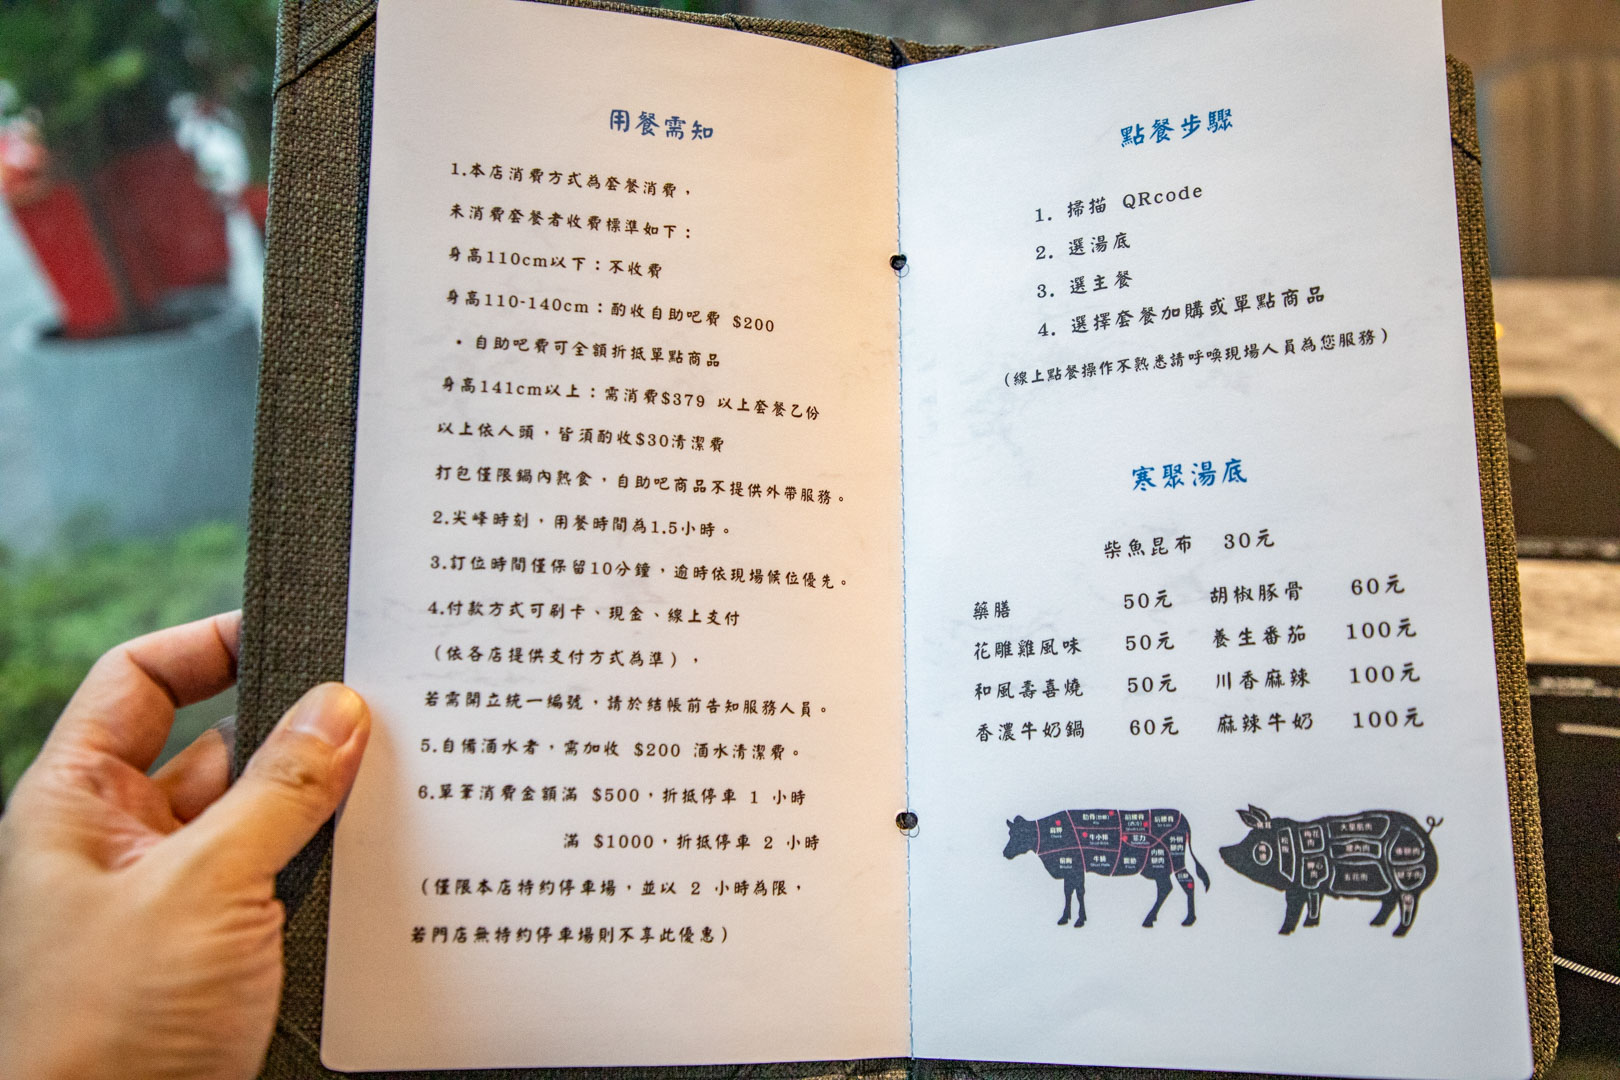 用餐需知
1.本店消費方式為套餐消費，
未消費套餐者收費標準如下：
身高110cm以下：不收費
身高110-140cm：酌收自助吧費 $200
・自助吧費可全額折抵單點商品
身高141cm以上：需消費$379 以上套餐乙份
以上依人頭，皆須酌收$30清潔費
打包僅限鍋內熟食，自助吧商品不提供外帶服務。
2.尖峰時刻，用餐時間為1.5小時。
3.訂位時間僅保留10分鐘，逾時依現場候位優先。
4.付款方式可刷卡、現金、線上支付
（依各店提供支付方式為準），
若需開立統一編號，請於結帳前告知服務人員。
5.自備酒水者，需加收 $200 酒水清潔費。
6.單筆消費金額滿 $500，折抵停車 1 小時
滿 $1000，折抵停車 2 小時
（僅限本店特約停車場，並以 2 小時為限，
若門店無特約停車場則不享此優惠）
點餐步驟
1. 掃描 QRcode
2. 選湯底
3. 選主餐
4. 選擇套餐加購或單點商品
（線上點餐操作不熟悉請呼喚現場人員為您服務）
寒聚湯底
柴魚昆布 30元
藥膳 50元 胡椒豚骨 60元
花雕雞風味 50元 養生番茄 100元
和風壽喜燒 50元 川香麻辣 100元
香濃牛奶鍋 60元 麻辣牛奶 100元